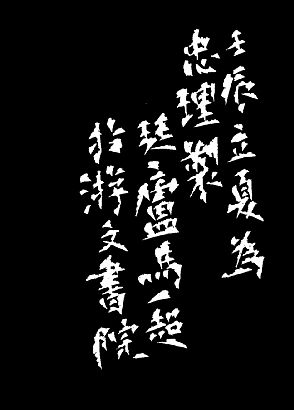 壬辰立夏為
忠理製
廬馬一超
於游文書院